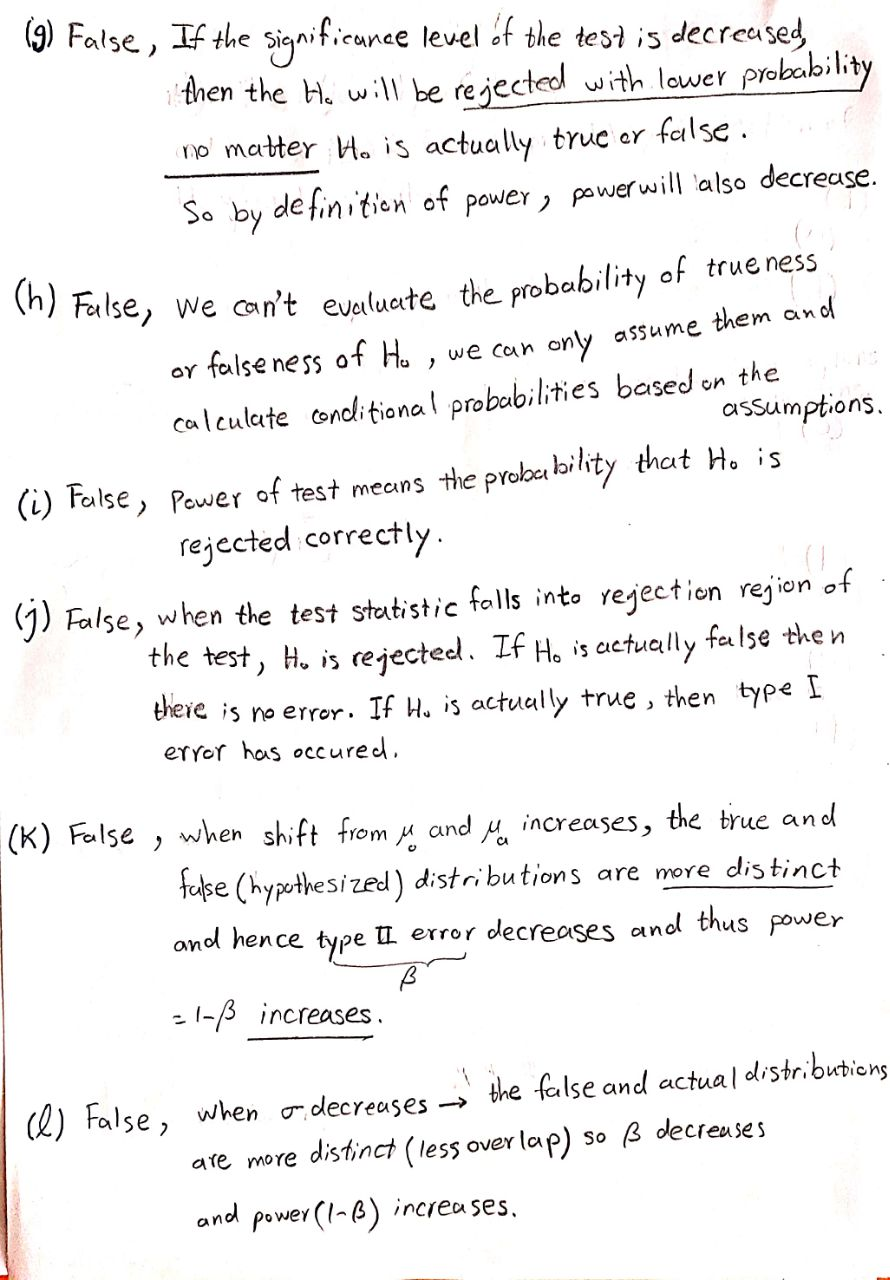 (g) False, If the significance level of the test is decreased,
then the H₀ will be rejected with lower probability
no matter H₀ is actually true or false.
So by definition of power, power will also decrease.
(h) False, We can't evaluate the probability of trueness
or falseness of H₀, we can only assume them and
calculate conditional probabilities based on the
assumptions.
(i) False, Power of test means the probability that H₀ is
rejected correctly.
(j) False, when the test statistic falls into rejection rejion of
the test, H₀ is rejected. If H₀ is actually false then
there is no error. If H₀ is actually true, then type I
error has occured.
(K) False, when shift from μ₀ and μₐ increases, the true and
false (hypothesized) distributions are more distinct
and hence type II error decreases and thus power
β
= 1-β increases.
(l) False, when σ decreases → the false and actual distributions
are more distinct (less overlap) so β decreases
and power (1-β) increases.